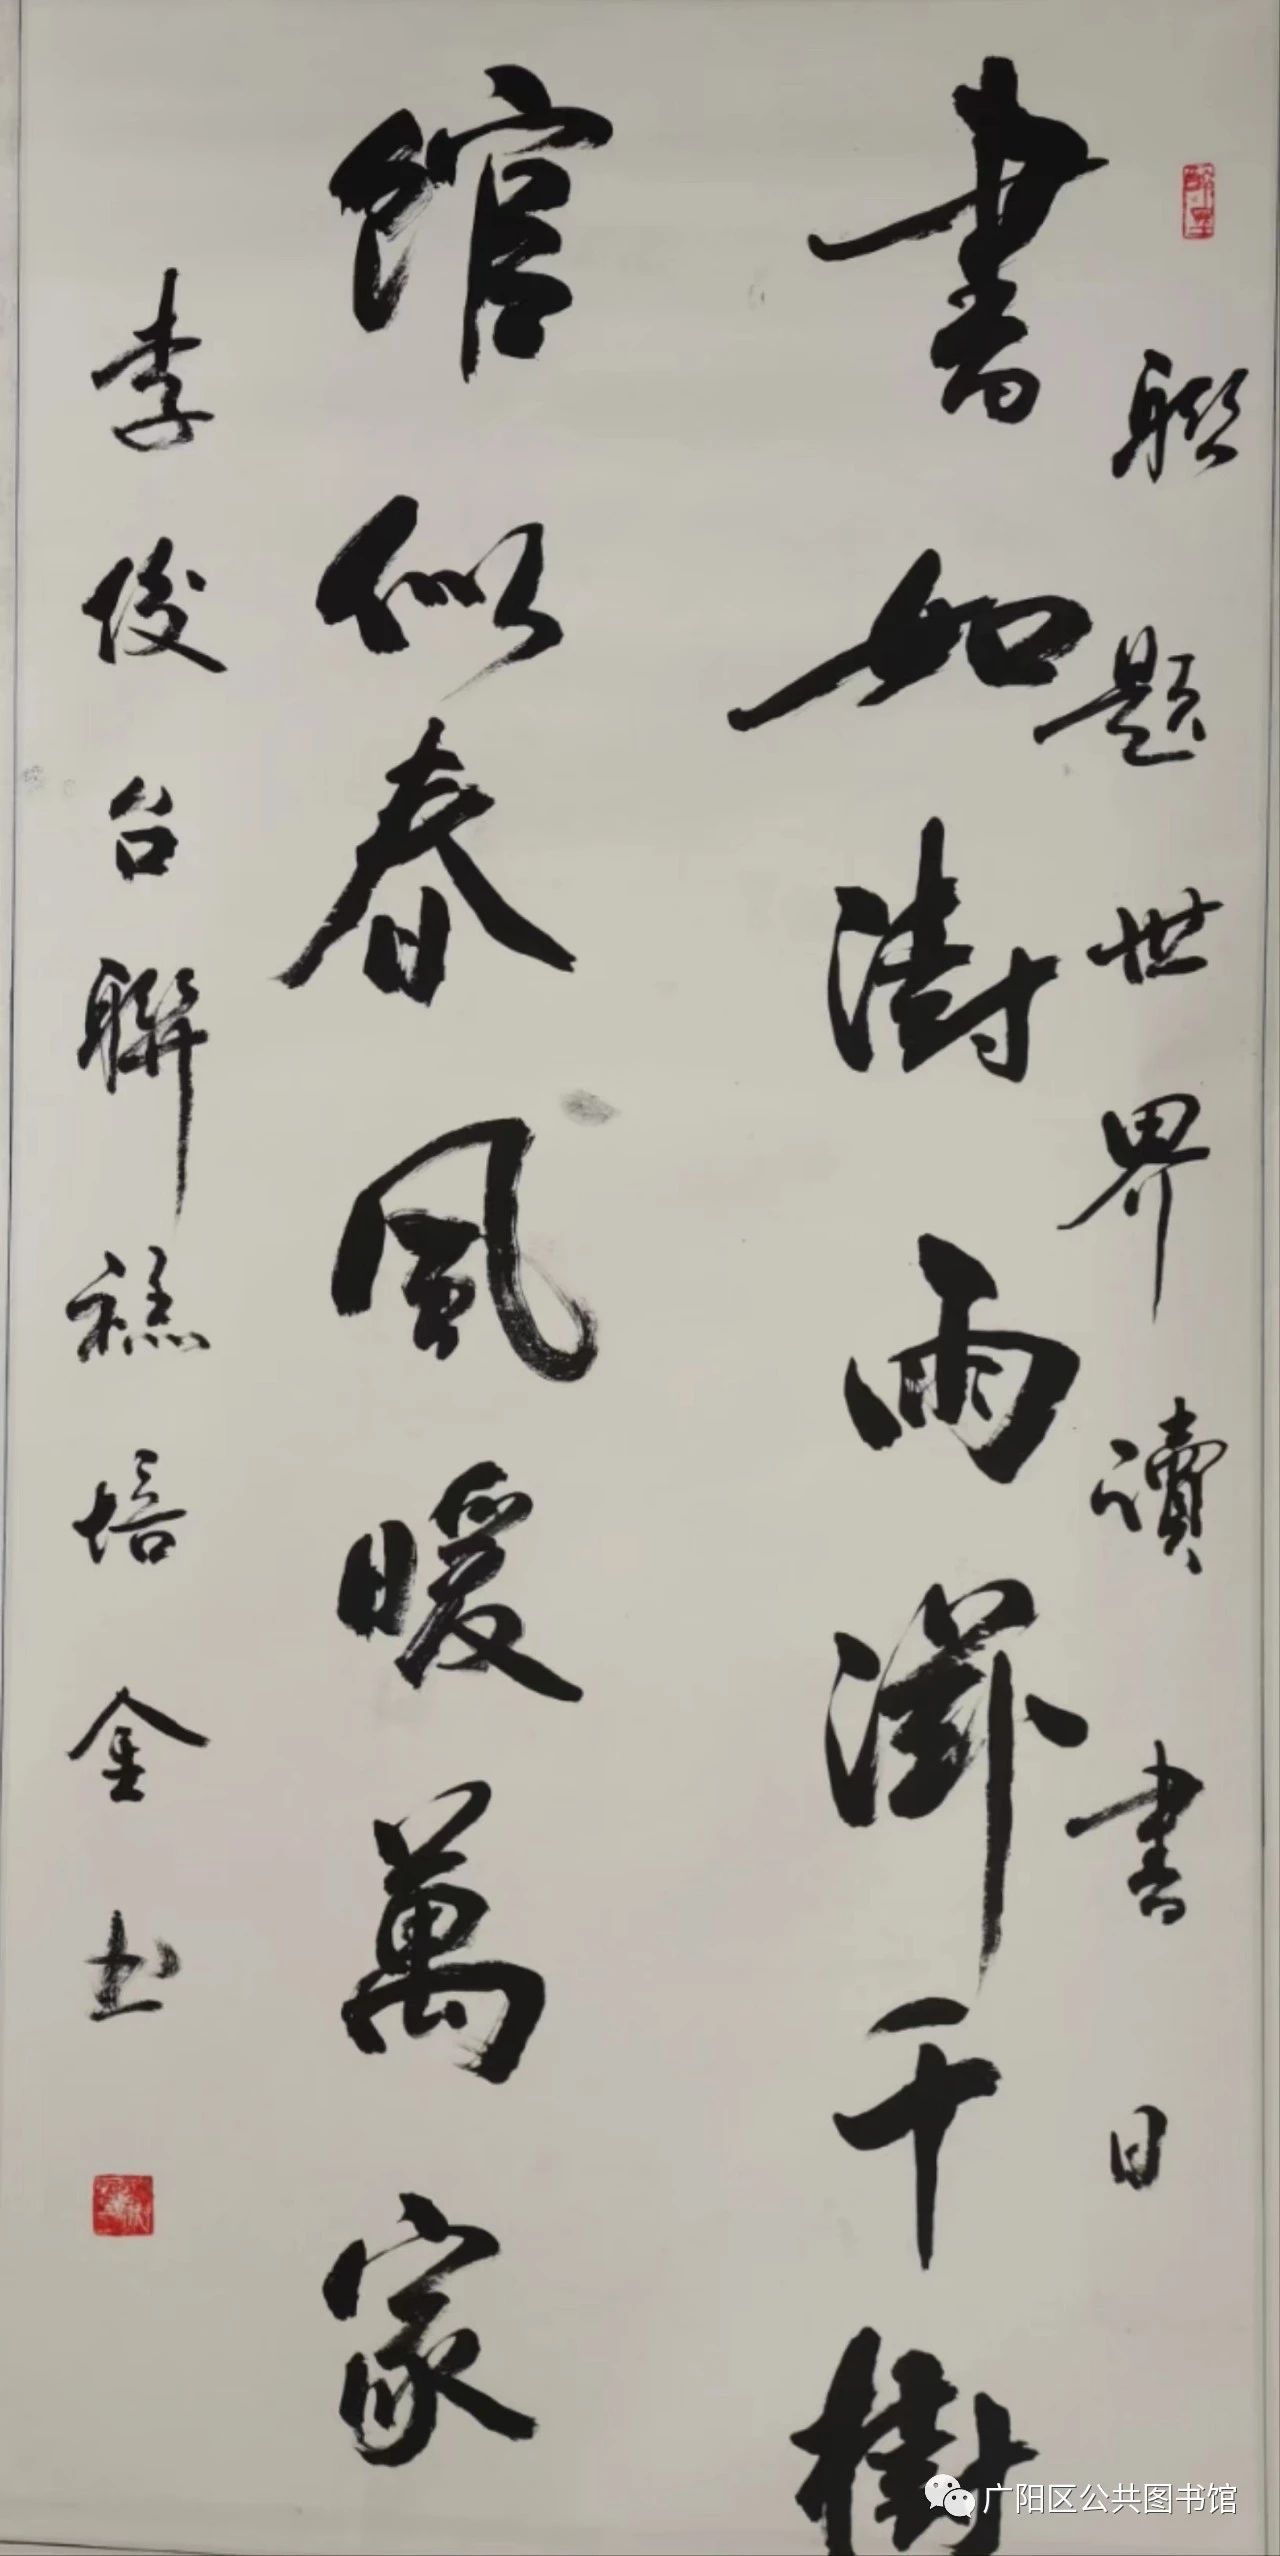 联题世界讀書日
書如澍雨千樹
馆似春風暖萬家
李俊台聯禚培金书
广阳区公共图书馆